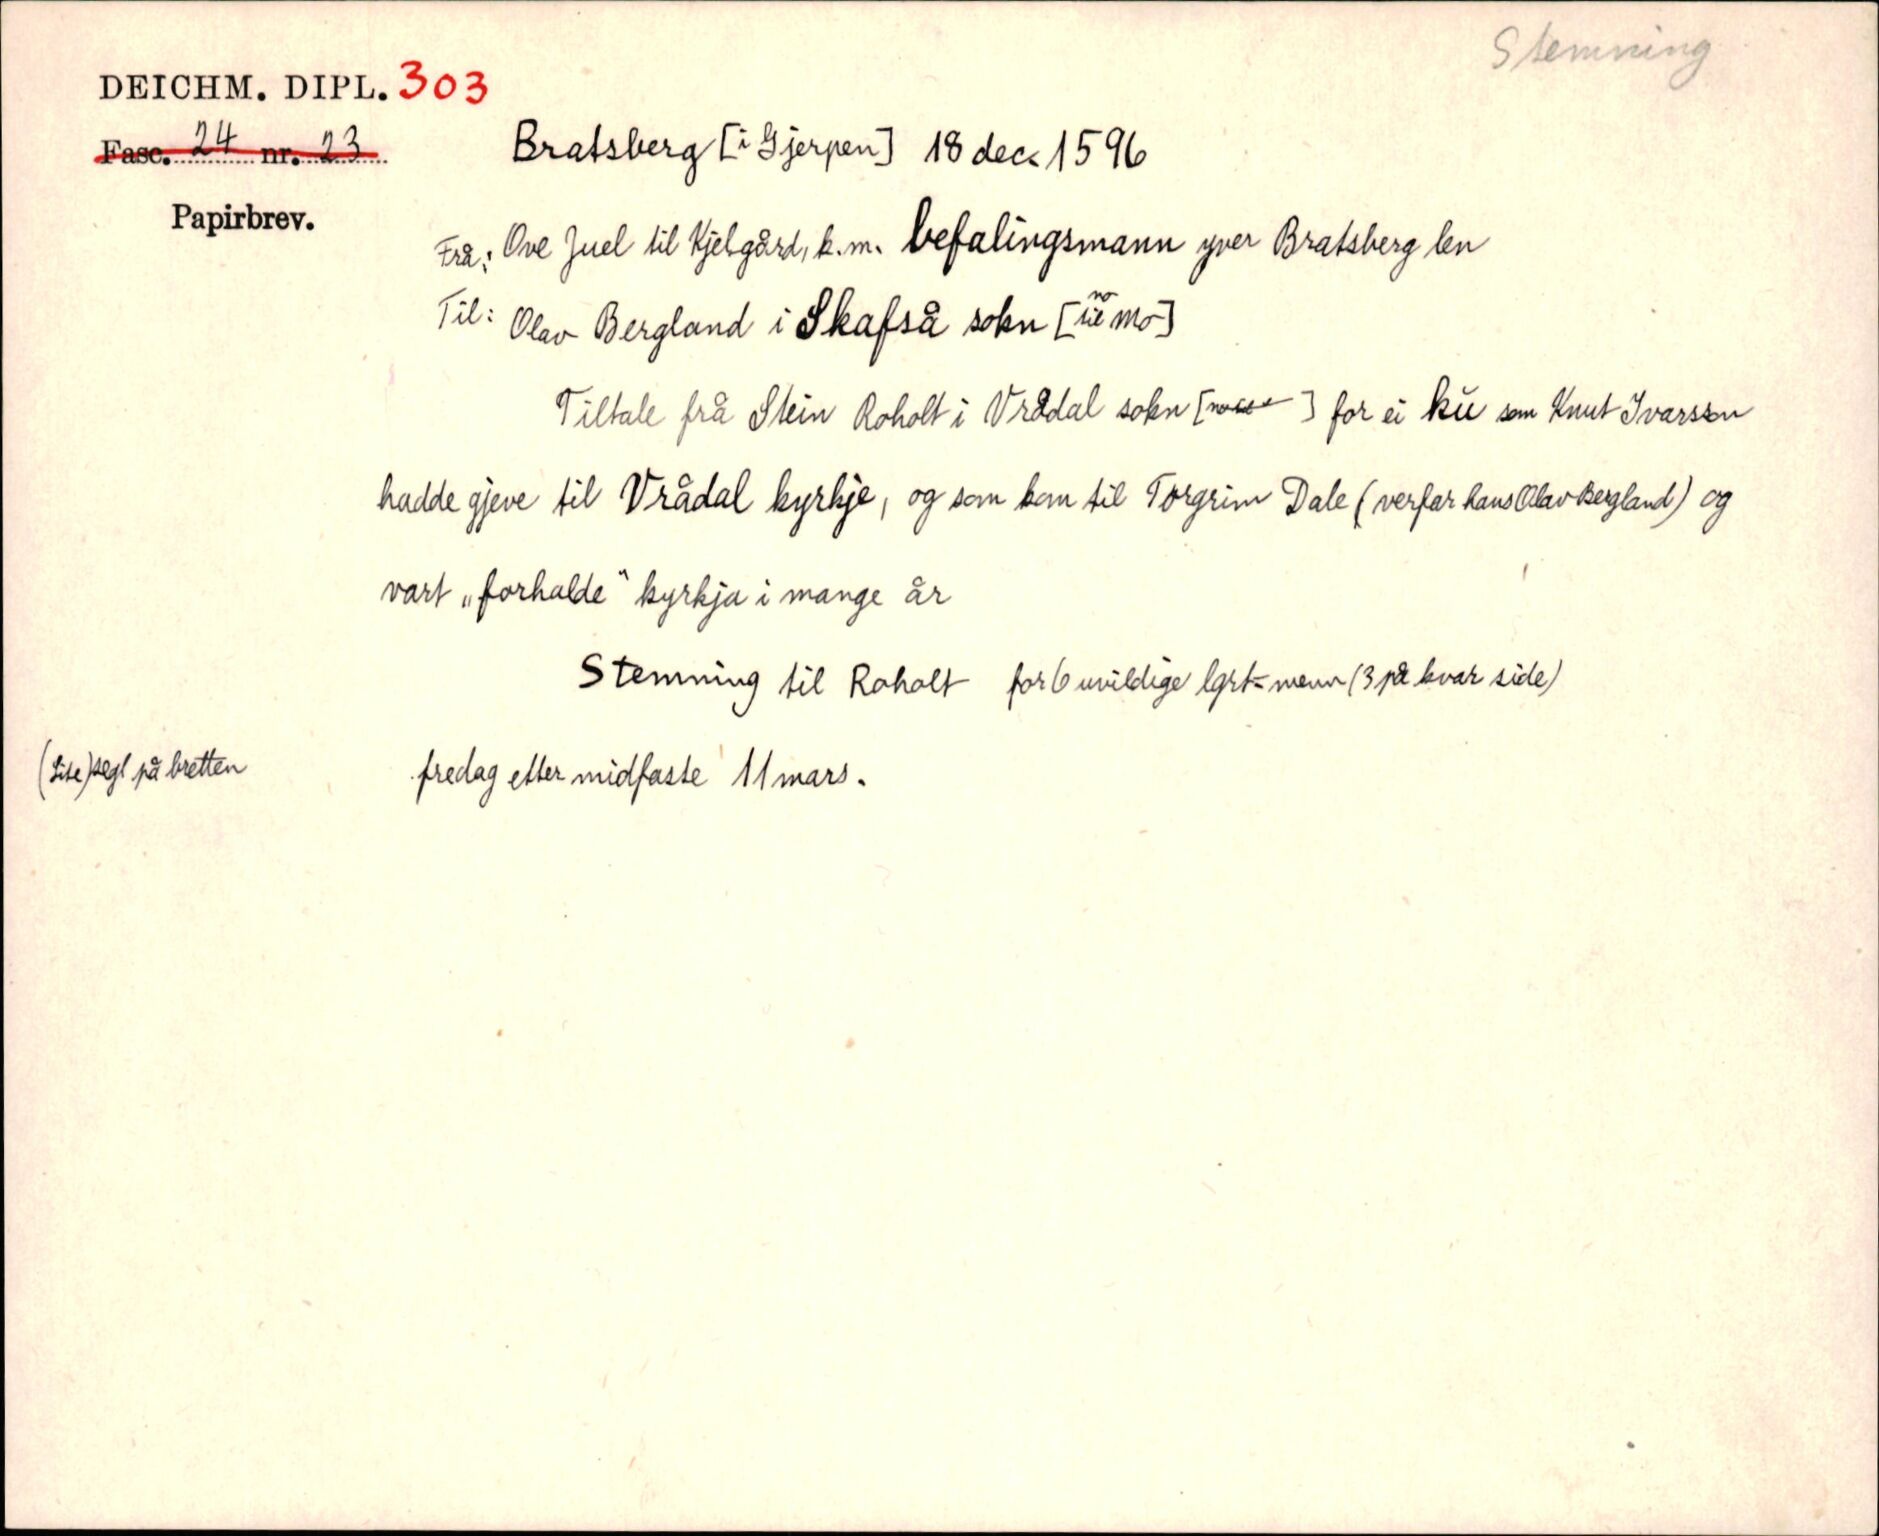 Stemning
DEICHM. DIPL. 303
Fasc. 24 nr. 23
Bratsberg [i Gjerpen] 18 dec. 1596
Papirbrev.
Frå: Ove Juel til Kjelsgård, k.m. befalingsmann yver Bratsberg len
Til: Olav Bergland i Skafså sokn [no Mo]
Tiltale frå Stein Roholt i Vrådal sokn [ ] for ei ku som Knut Ivarsson
hadde gjeve til Vrådal kyrkje, og som kom til Torgrim Dale (verfar hans Olav Bergland) og
vart „forhalde“ kyrkja i mange år
Stemning til Roholt for 6 uvildige lgrt-menn (3 på kvar side)
(Lite) segl på bretten
fredag etter midfaste 11 mars.